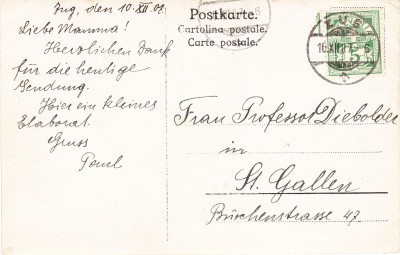 Zug, den 10. XII 07.
Liebe Mamma!
Herzlichen Dank
für die heutige
Sendung.
Hier ein kleines
Elaborat.
Gruss
Paul
Postkarte.
Cartolina postale.
Carte postale.
ZUG
10.XII.07. 6
5
Frau Professor Diebolder
in
St. Gallen
Büschenstrasse 47